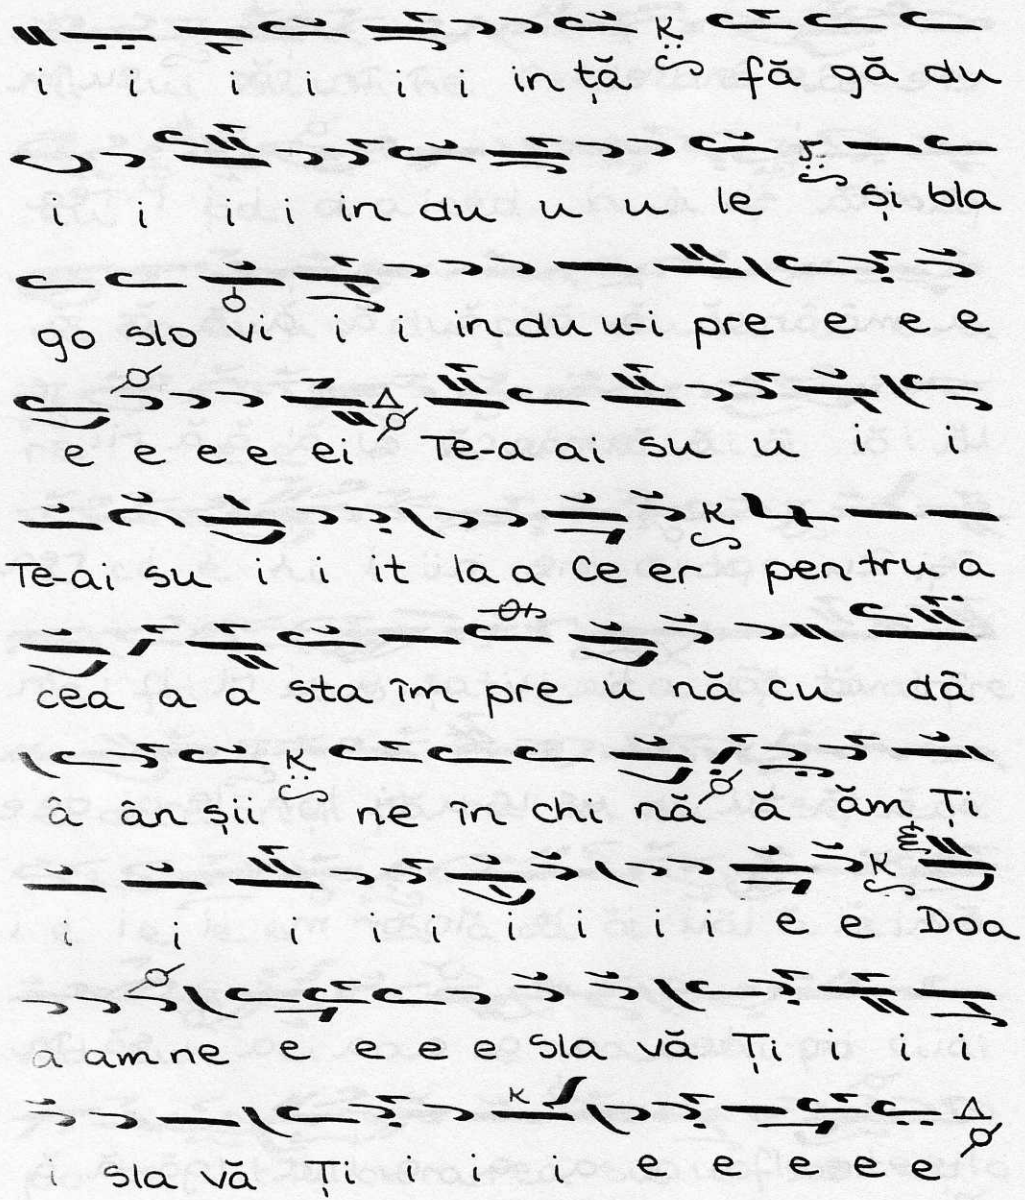 i i i i i i in ță fă gă du
i i i i in du u u le și bla
go slo vi i i in du u-i pre e e e
e e e e ei Te-a ai su u i i
Te-ai su i i it la a Ce er pen tru a
cea a a sta îm pre u nă cu dâ
â ân șii ne în chi nă ă ăm Ți
i i i i i i i i i e e Doa
a am ne e e e e Sla vă Ți i i i
i sla vă Ți i i i e e e e e